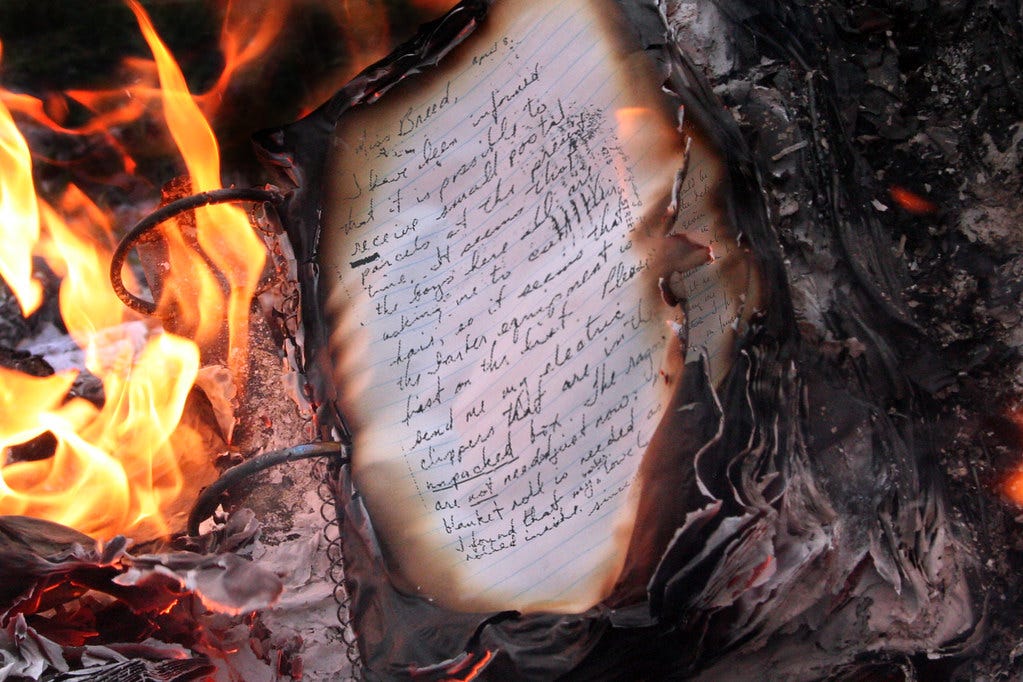 April 8,
Miss Breed,
I have been informed
that it is possible to
receive small postal
parcels at the present
time. It seems that
the boys here all are
asking me to cut their
hair, so it seems that
the barber equipment is
first on the list. Please
send me my electric
clippers that are in the
unpacked box. The
are not needed just now.
blanket roll is needed as
I found that
rolled inside.